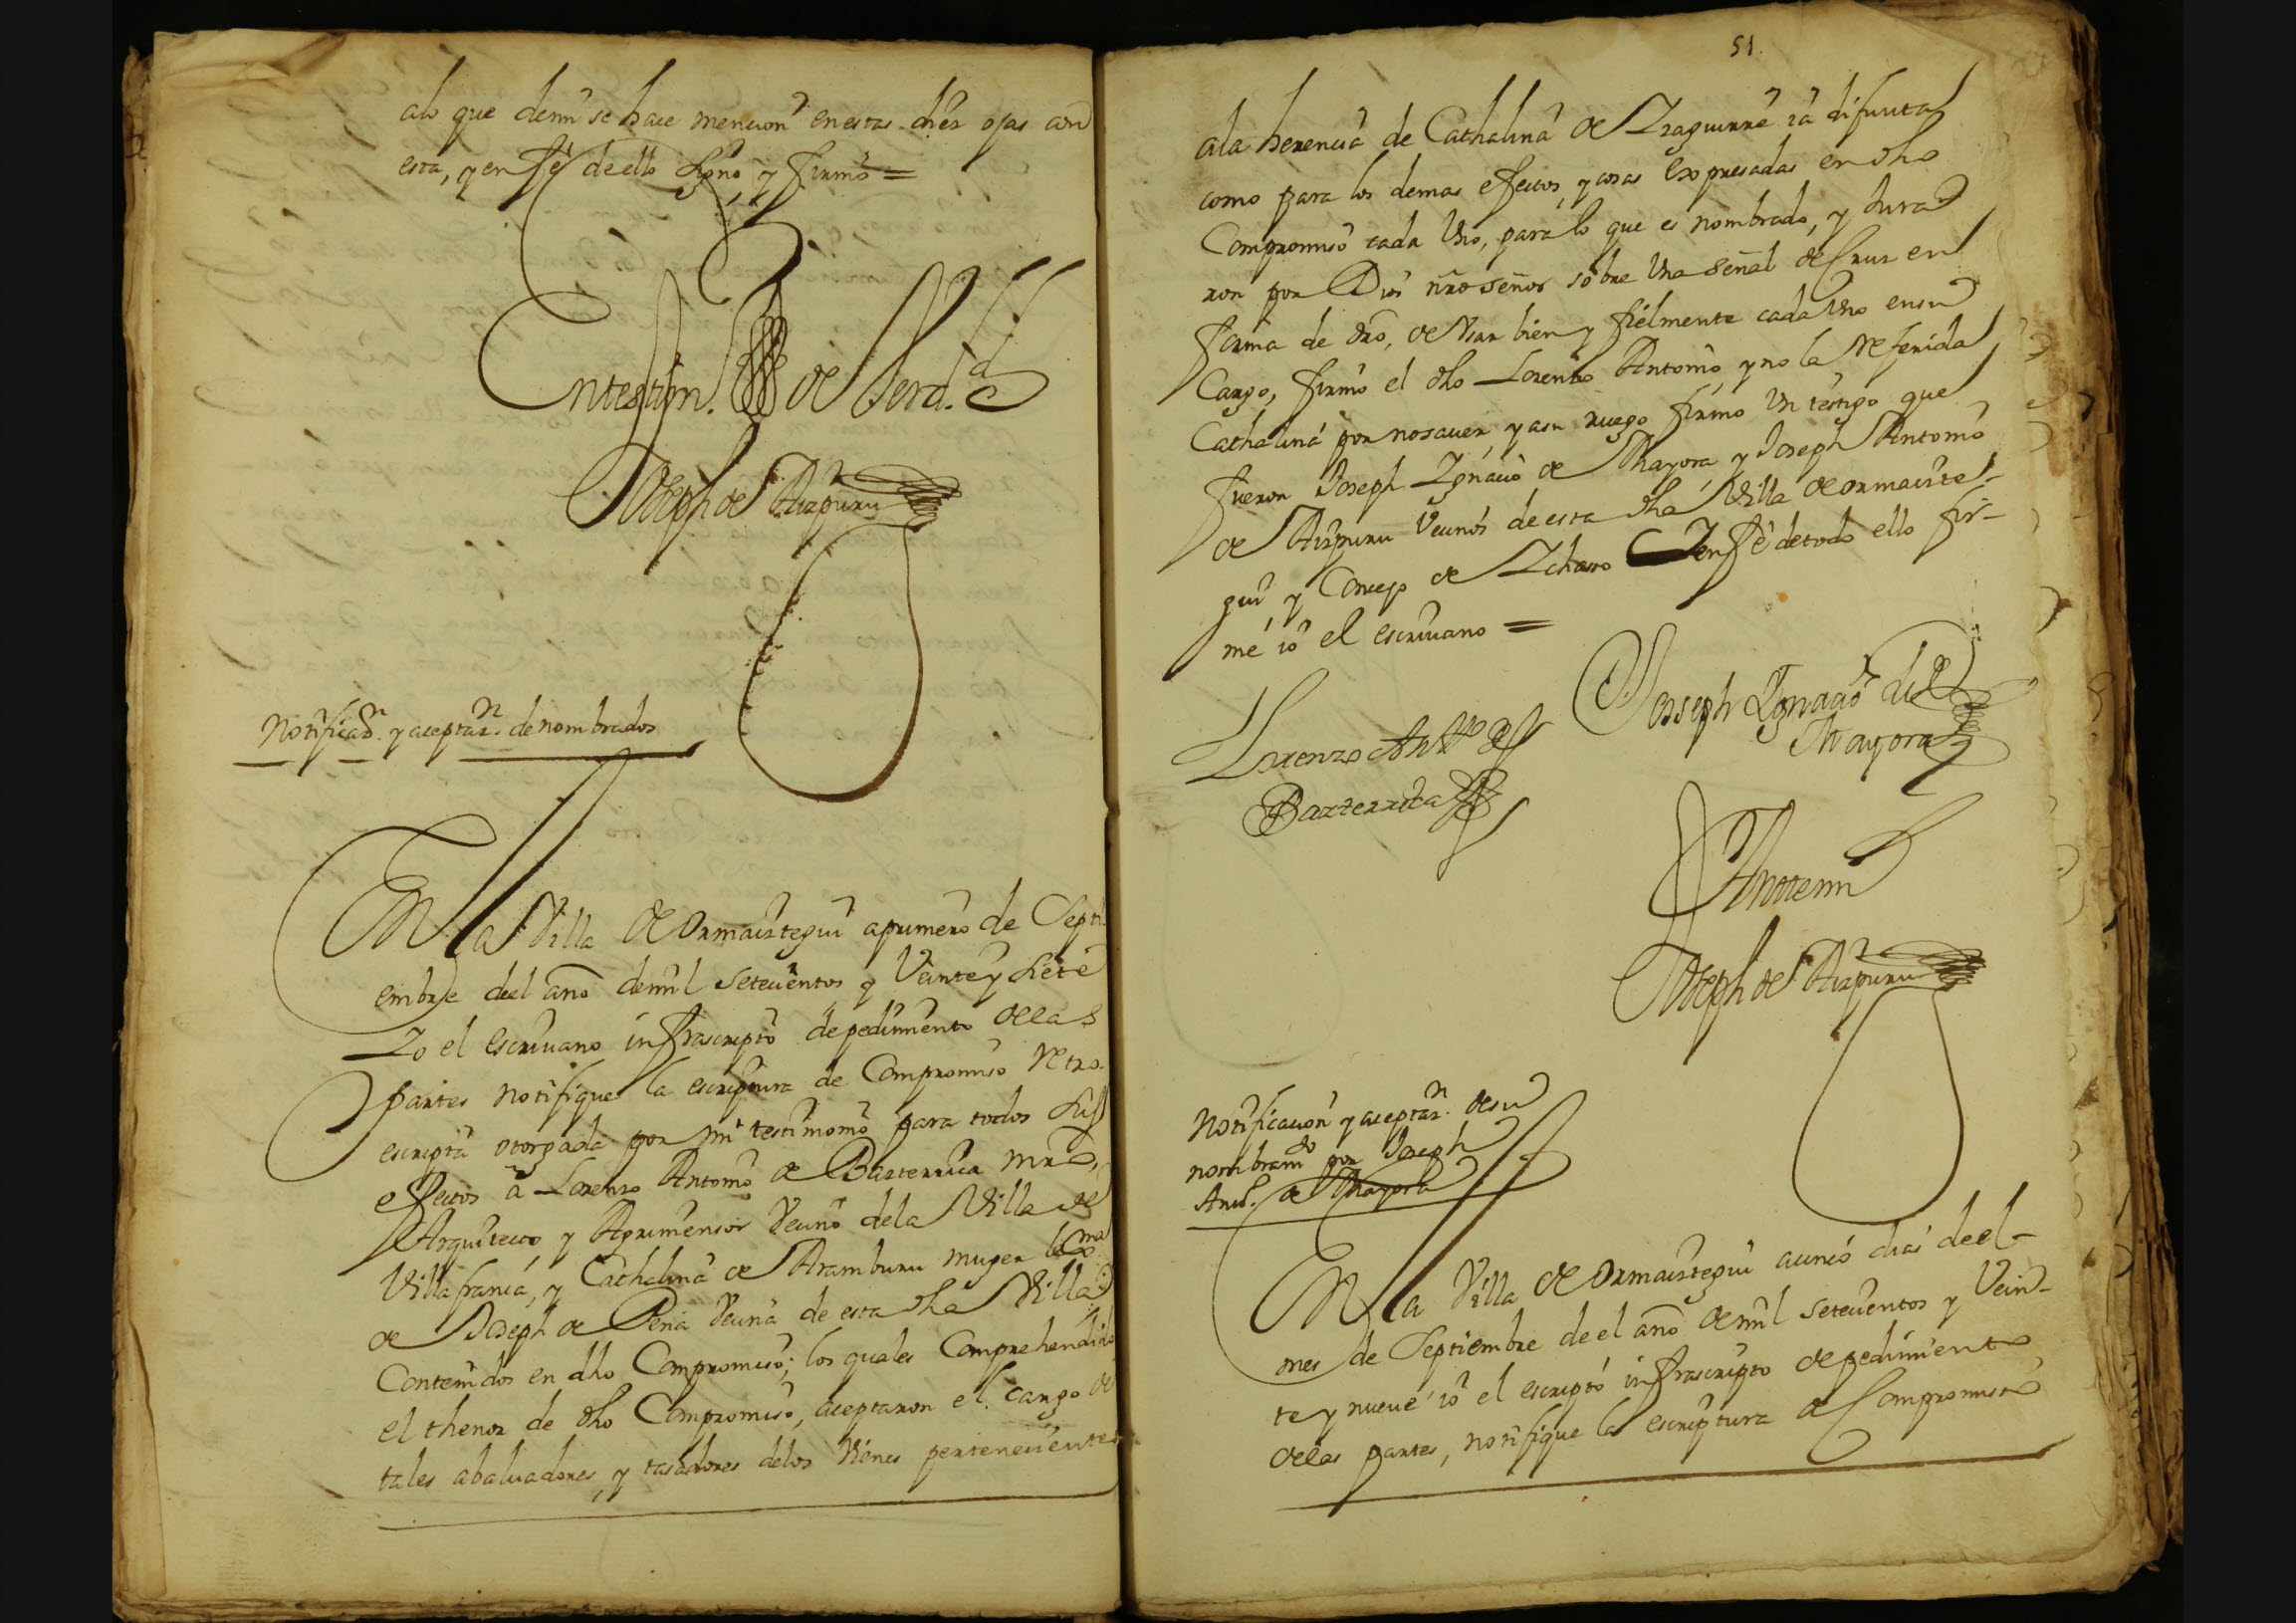 alo que demi se hace mencion en estas diez ojas con
esta, y en fee de ello signo y firmo =
En testim.º de Verd.d
Joseph de Aizpuru
Notificaz.n y aceptaz.n de nombrados
En la Villa de Ormaiztegui a primero de Septi
embre de el año de mil setecientos y Veinte y siete
Yo el escrivano infrascripto de pedimento de las
partes notifique la escriptura de Compromiso retro
escripta otorgada por mi testimonio para todos sus
efectos â Lorenzo Antonio de Barterrica mro,
Arquitecto y Agrimensor Vecino de la Villa de
Villafranca, y Cathalina de Aramburu muger lexma
de Joseph de Peña Vecina de esta dha Villa
Contenidos en dho Compromiso; los quales Comprehendido
el thenor de dho Compromiso, aceptaron el cargo de
tales abaluadores, y tasadores delos Vienes pertenecientes
51
ala herencia de Cathalina de Yzaguirre ia difunta
como para los demas efectos, y cosas Expresadas en dho
Compromiso cada Uno, para lo que es nombrado, y Jura
ron por Dios nro señor sobre Una señal de Cruz en
forma de dro, de Usar bien y fielmente cada Uno en su
Cargo, firmo el dho Lorenzo Antonio, y no la referida
Cathalina por no saver, y a su ruego firmo Un testigo que
fueron Joseph Ygnacio de Mayora, y Joseph Antonio
de Aizpuru Vecinos de esta dha Villa de Ormaizte-
gui y Concejo de Ychaso Y en fê de todo ello fir-
mé io el escrivano =
Lorenzo Antto de
Barterrica
Josseph Ygnacio de
Mayora
Antemi
Joseph de Aizpuru
Notificacion y aceptaz.n de su
nombramdo por Joseph
de Mayora
En la Villa de Ormaiztegui a cinco dias de el
mes de Septiembre de el año de mil setecientos y Vein-
te y nueve io el escripto infrascripto de pedimiento
de las partes, notifique la escriptura de Compromiso